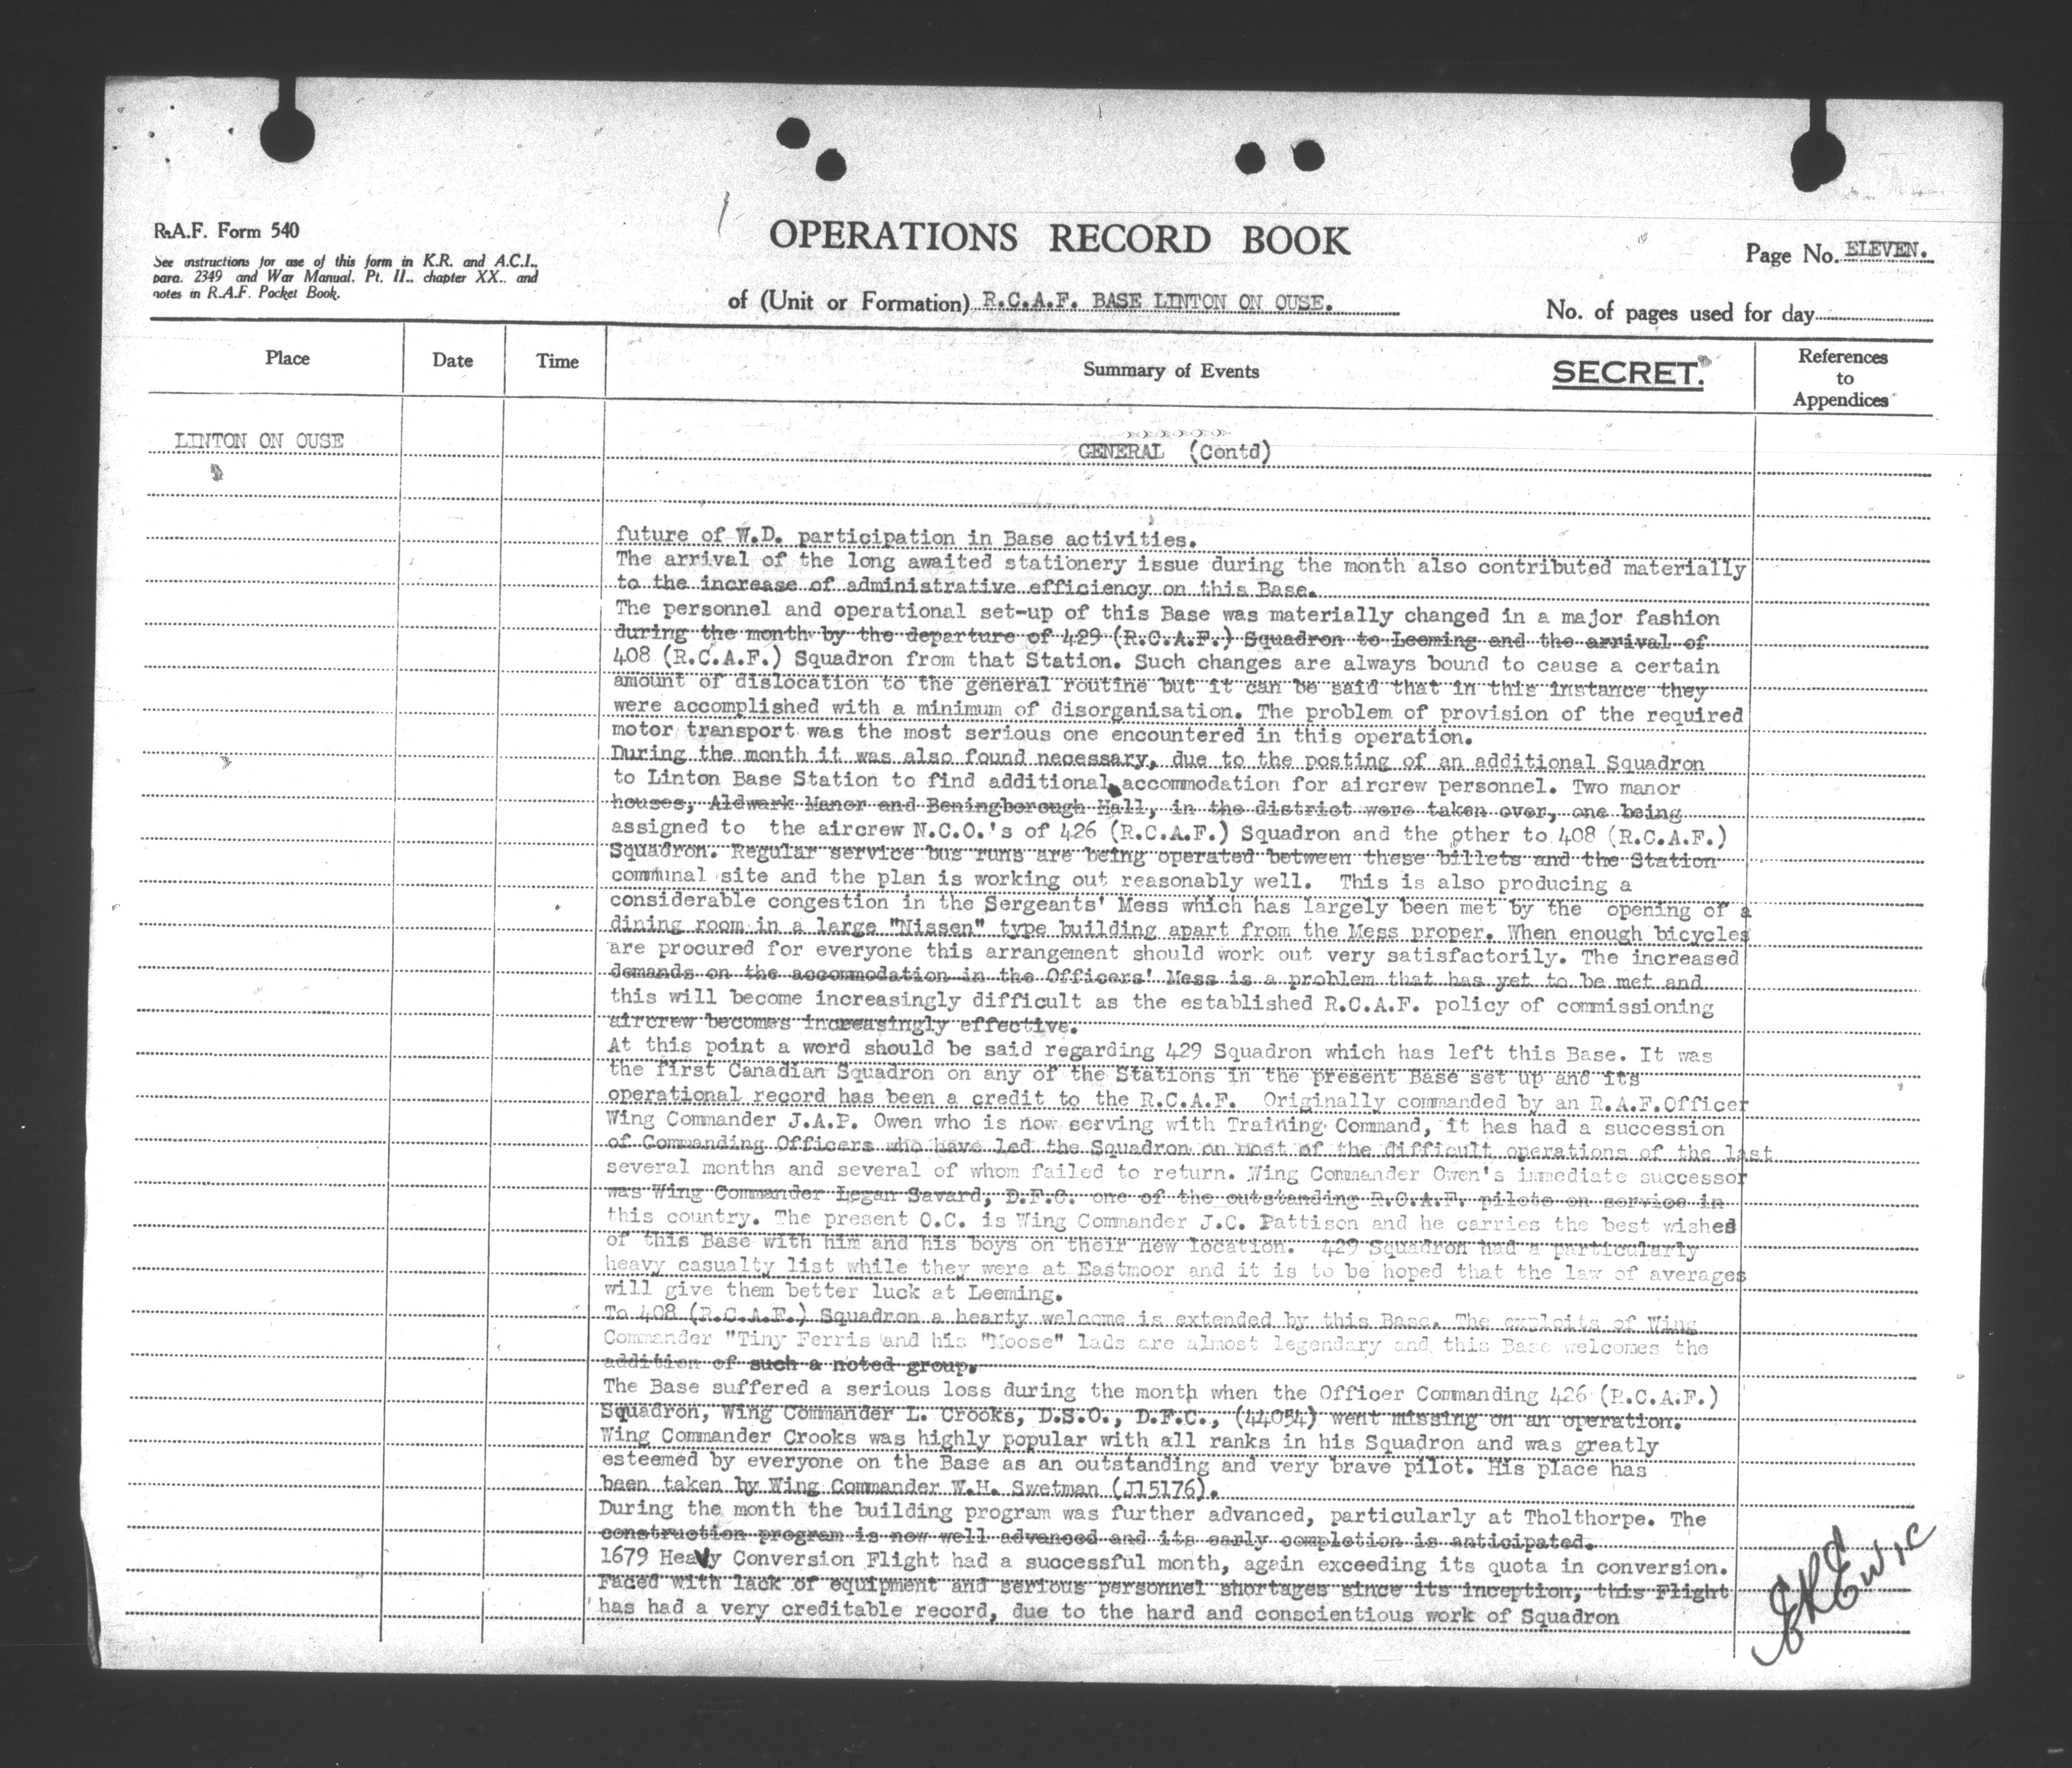 R.A.F. Form 540
See instructions for use of this form in K.R. and A.C.I.,
para. 2349 and War Manual. Pt. II., chapter XX.. and
notes in R.A.F. Pocket Book.
OPERATIONS RECORD BOOK
Page No. ELEVEN.
of (Unit or Formation) R.C.A.F. BASE LINTON ON OUSE.
No. of pages used for day
Place
Date
Time
Summary of Events
SECRET.
References
to
Appendices
LINTON ON OUSE
GENERAL (Contd)
future of W.D. participation in Base activities.
The arrival of the long awaited stationery issue during the month also contributed materially
to the increase of administrative efficiency on this Base.
The personnel and operational set-up of this Base was materially changed in a major fashion
during the month by the departure of 429 (R.C.A.F.) Squadron to Leeming and the arrival of
408 (R.C.A.F.) Squadron from that Station. Such changes are always bound to cause a certain
amount of dislocation to the general routine but it can be said that in this instance they
were accomplished with a minimum of disorganisation. The problem of provision of the required
motor transport was the most serious one encountered in this operation.
During the month it was also found necessary, due to the posting of an additional Squadron
to Linton Base Station to find additional accommodation for aircrew personnel. Two manor
houses, Aldwark Manor and Beningborough Hall, in the district were taken over, one being
assigned to the aircrew N.C.O.'s of 426 (R.C.A.F.) Squadron and the other to 408 (R.C.A.F.)
Squadron. Regular service bus runs are being operated between these billets and the Station
communal site and the plan is working out reasonably well. This is also producing a
considerable congestion in the Sergeants' Mess which has largely been met by the opening of a
dining room in a large "Nissen" type building apart from the Mess proper. When enough bicycles
are procured for everyone this arrangement should work out very satisfactorily. The increased
demands on the accommodation in the Officers' Mess is a problem that has yet to be met and
this will become increasingly difficult as the established R.C.A.F. policy of commissioning
aircrew becomes increasingly effective.
At this point a word should be said regarding 429 Squadron which has left this Base. It was
the first Canadian Squadron on any of the Stations in the present Base set up and its
operational record has been a credit to the R.C.A.F. Originally commanded by an R.A.F.Officer
Wing Commander J.A.P. Owen who is now serving with Training Command, it has had a succession
of Commanding Officers who have led the Squadron on most of the difficult operations of the last
several months and several of whom failed to return. Wing Commander Owen's immediate successor
was Wing Commander Logan Savard, D.F.C. one of the outstanding R.C.A.F. pilots on service in
this country. The present O.C. is Wing Commander J.C. Pattison and he carries the best wished
of this Base with him and his boys on their new location. 429 Squadron had a particularly
heavy casualty list while they were at Eastmoor and it is to be hoped that the law of averages
will give them better luck at Leeming.
To 408 (R.C.A.F.) Squadron a hearty welcome is extended by this Base. The exploits of Wing
Commander "Tiny Ferris and his "Moose" lads are almost legendary and this Base welcomes the
addition of such a noted group.
The Base suffered a serious loss during the month when the Officer Commanding 426 (R.C.A.F.)
Squadron, Wing Commander L. Crooks, D.S.O., D.F.C., (44054) went missing on an operation.
Wing Commander Crooks was highly popular with all ranks in his Squadron and was greatly
esteemed by everyone on the Base as an outstanding and very brave pilot. His place has
been taken by Wing Commander W.H. Swetman (J15176).
During the month the building program was further advanced, particularly at Tholthorpe. The
construction program is now well advanced and its early completion is anticipated.
1679 Heavy Conversion Flight had a successful month, again exceeding its quota in conversion.
Faced with lack of equipment and serious personnel shortages since its inception, this Flight
has had a very creditable record, due to the hard and conscientious work of Squadron